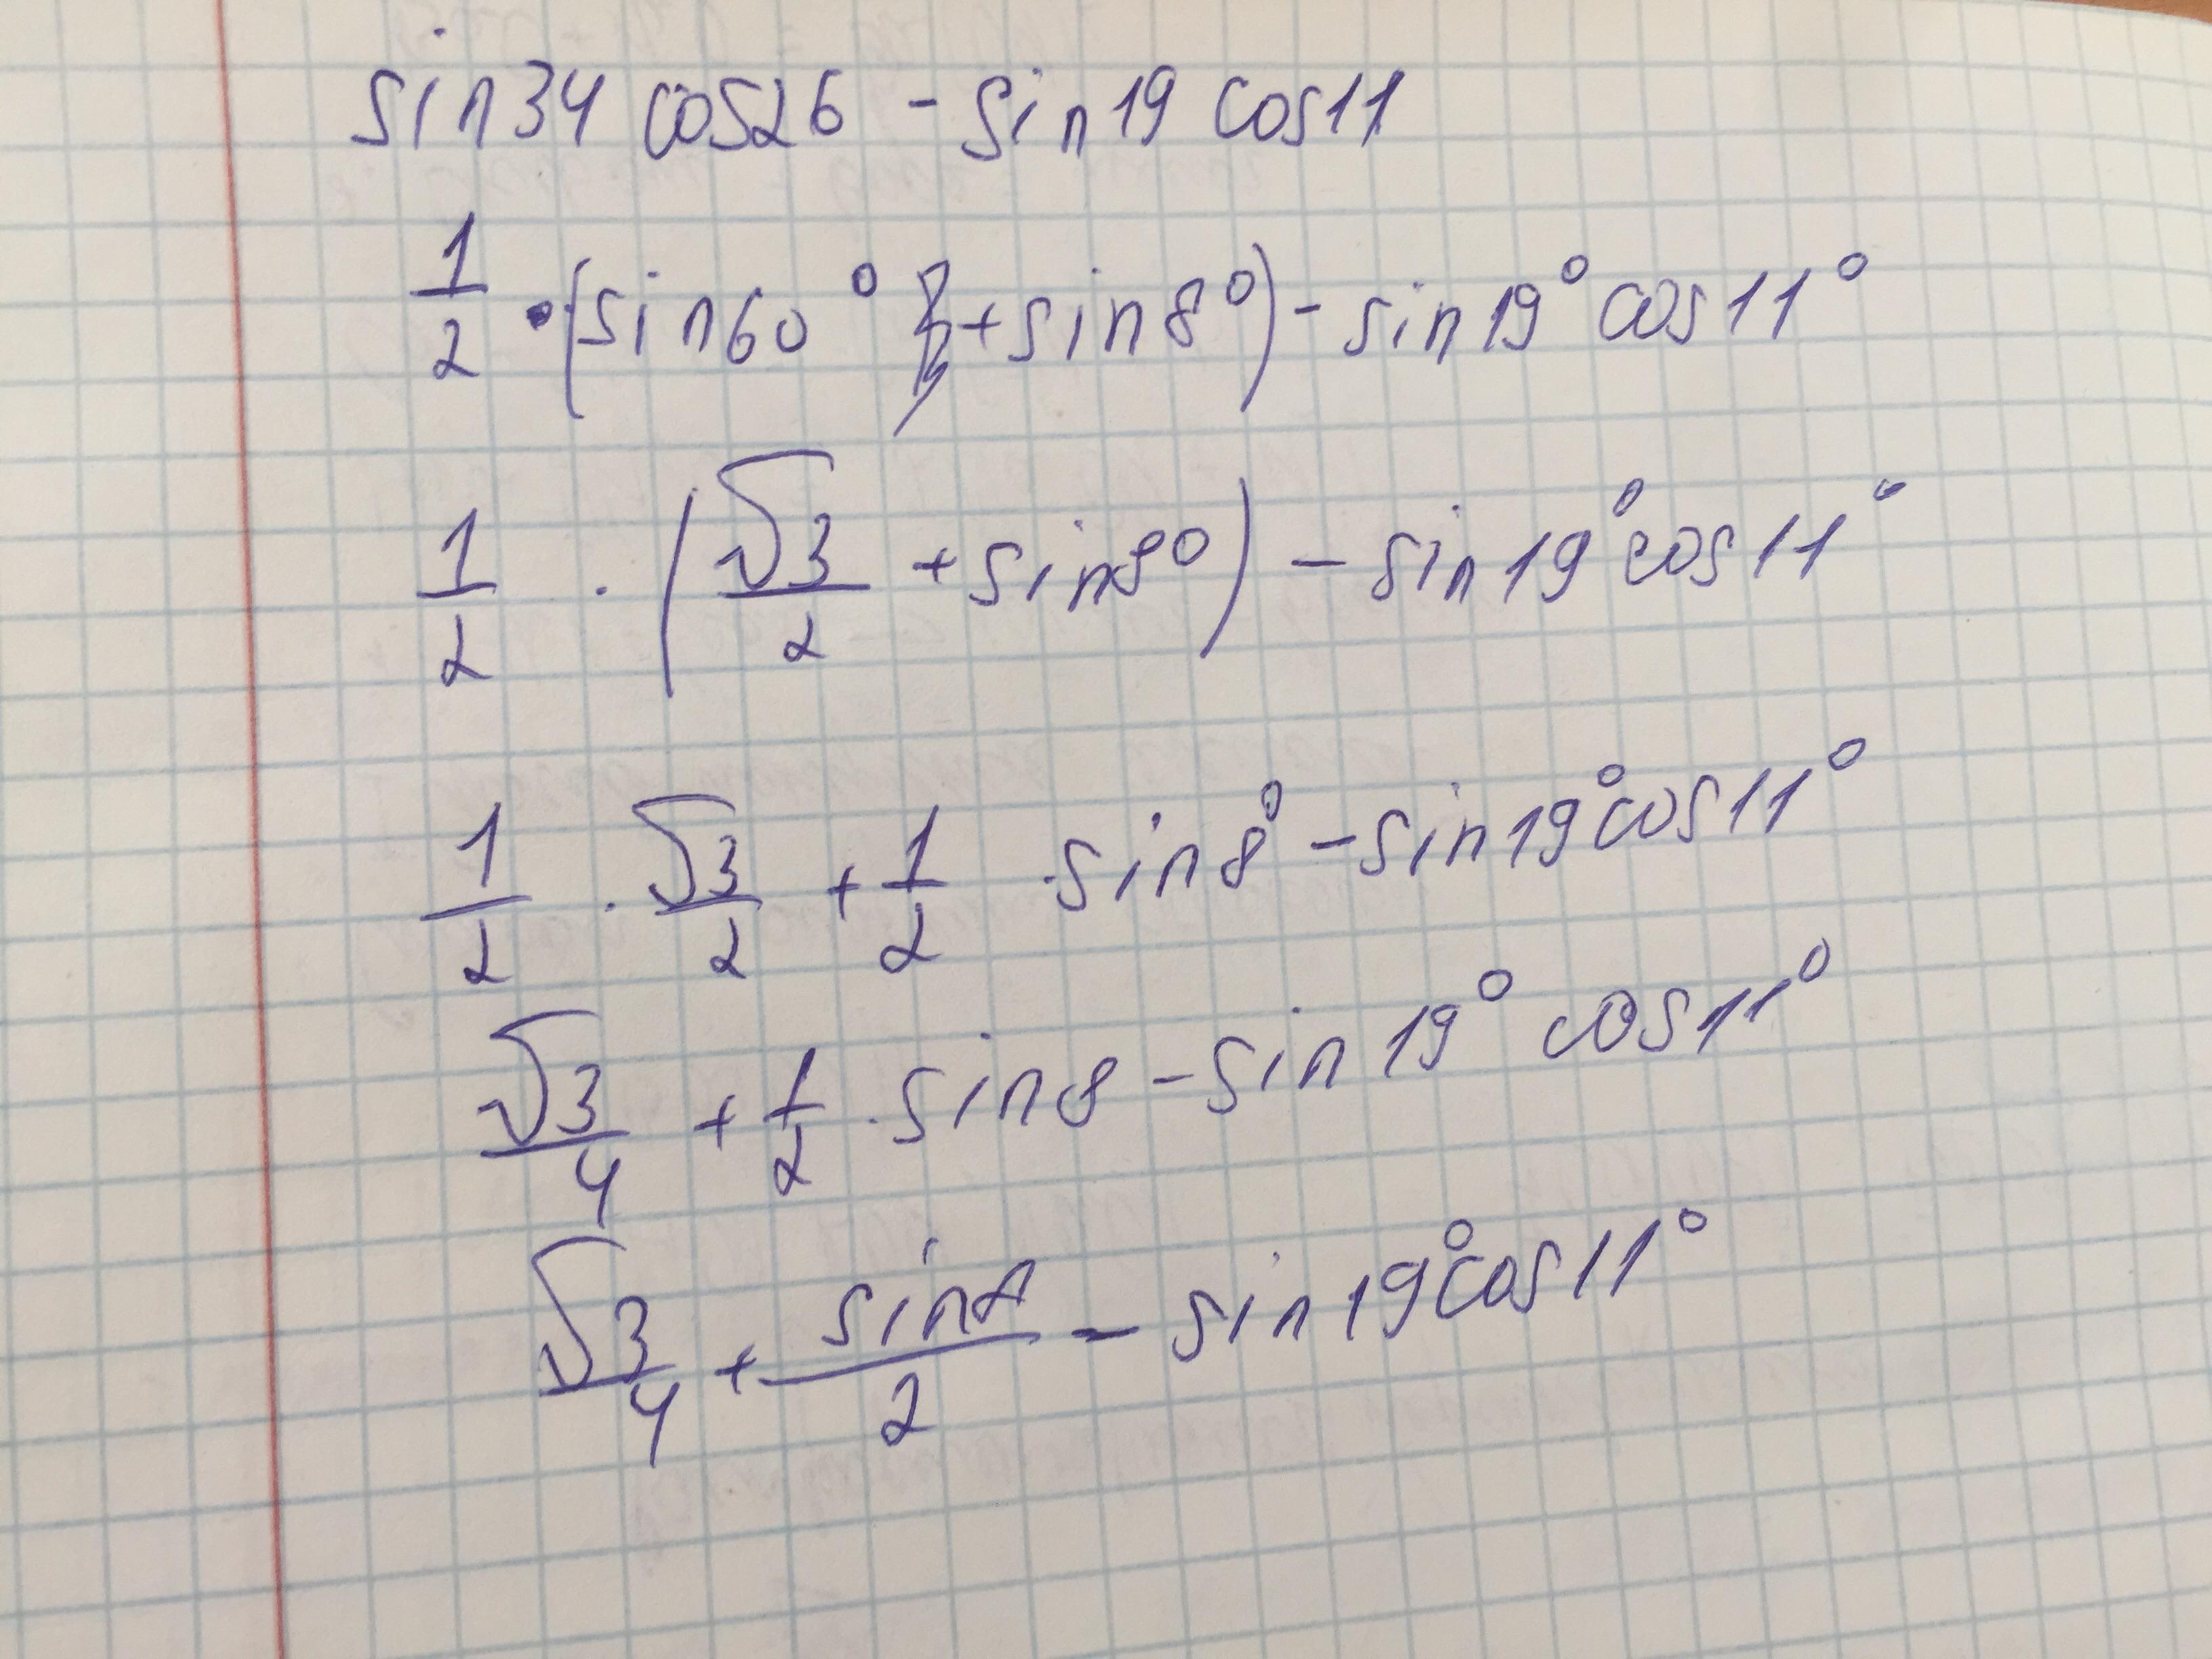 sin34 cos26 - sin19 cos11
1/2 · (sin60° + sin8°) - sin19° cos11°
1/2 · (√3/2 + sin8°) - sin19° cos11°
1/2 · √3/2 + 1/2 · sin8° - sin19° cos11°
√3/4 + 1/2 · sin8 - sin19° cos11°
√3/4 + sin8/2 - sin19° cos11°